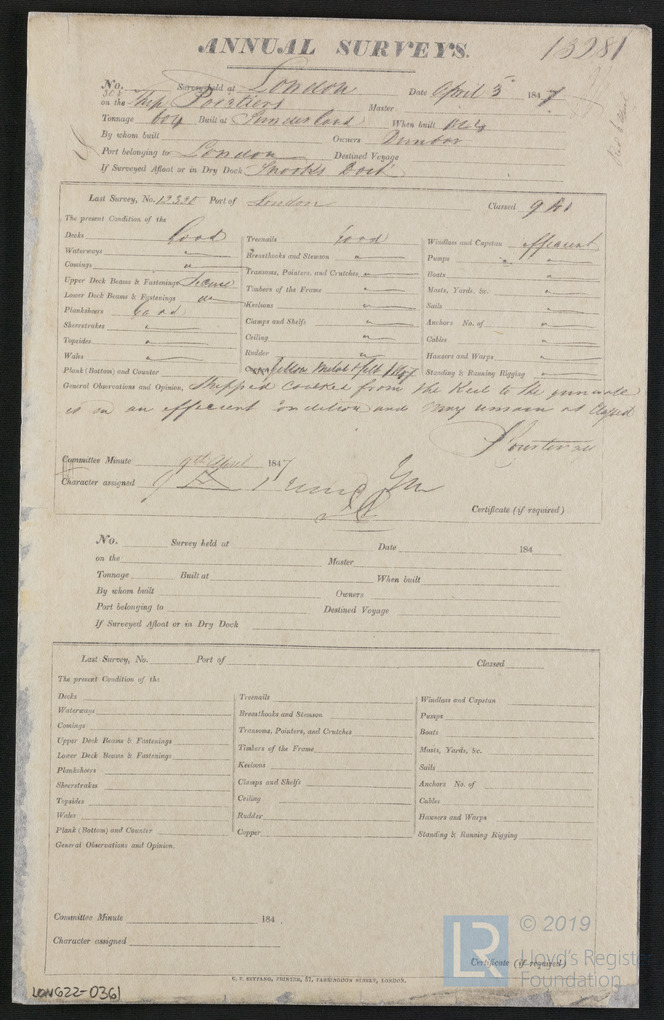 ANNUAL SURVEYS.
13281
No. 308 Survey held at London Date April 5 1847
on the Ship Poictiers Master
Tonnage 604 Built at Sunderland When built
By whom built Owners Dunbar
Port belonging to London Destined Voyage
If Surveyed Afloat or in Dry Dock Dock
Last Survey, No. 12330 Port of London Classed 9 A1
The present Condition of the
Decks Good
Waterways "
Comings "
Upper Deck Beams & Fastenings
Lower Deck Beams & Fastenings "
Planksheers Good
Sheerstrakes "
Topsides "
Wales "
Plank (Bottom) and Counter
Treenails Good
Breasthooks and Stemson "
Transoms, Pointers, and Crutches "
Timbers of the Frame "
Keelsons "
Clamps and Shelfs "
Ceiling "
Rudder "
Yellow Metal & felt
Windlass and Capstan efficient
Pumps "
Boats "
Masts, Yards, &c. "
Sails "
Anchors No. of "
Cables "
Hausers and Warps "
Standing & Running Rigging "
General Observations and Opinion, Stripped caulked from the Keel to the gunwale
is in an efficient condition and may remain as Classed
Committee Minute 9th April 1847
Character assigned
Certificate (if required)
No. Survey held at Date 184
on the Master
Tonnage Built at When built
By whom built Owners
Port belonging to Destined Voyage
If Surveyed Afloat or in Dry Dock
Last Survey, No. Port of Classed
The present Condition of the
Decks
Waterways
Comings
Upper Deck Beams & Fastenings
Lower Deck Beams & Fastenings
Planksheers
Sheerstrakes
Topsides
Wales
Plank (Bottom) and Counter
Treenails
Breasthooks and Stemson
Transoms, Pointers, and Crutches
Timbers of the Frame
Keelsons
Clamps and Shelfs
Ceiling
Rudder
Copper
Windlass and Capstan
Pumps
Boats
Masts, Yards, &c.
Sails
Anchors No. of
Cables
Hausers and Warps
Standing & Running Rigging
General Observations and Opinion.
Committee Minute 184
Character assigned
Certificate (if required)
PRINTER, 57, FARRINGDON STREET, LONDON.
LON622-0361
LR
© 2019
Lloyd's Register
Foundation